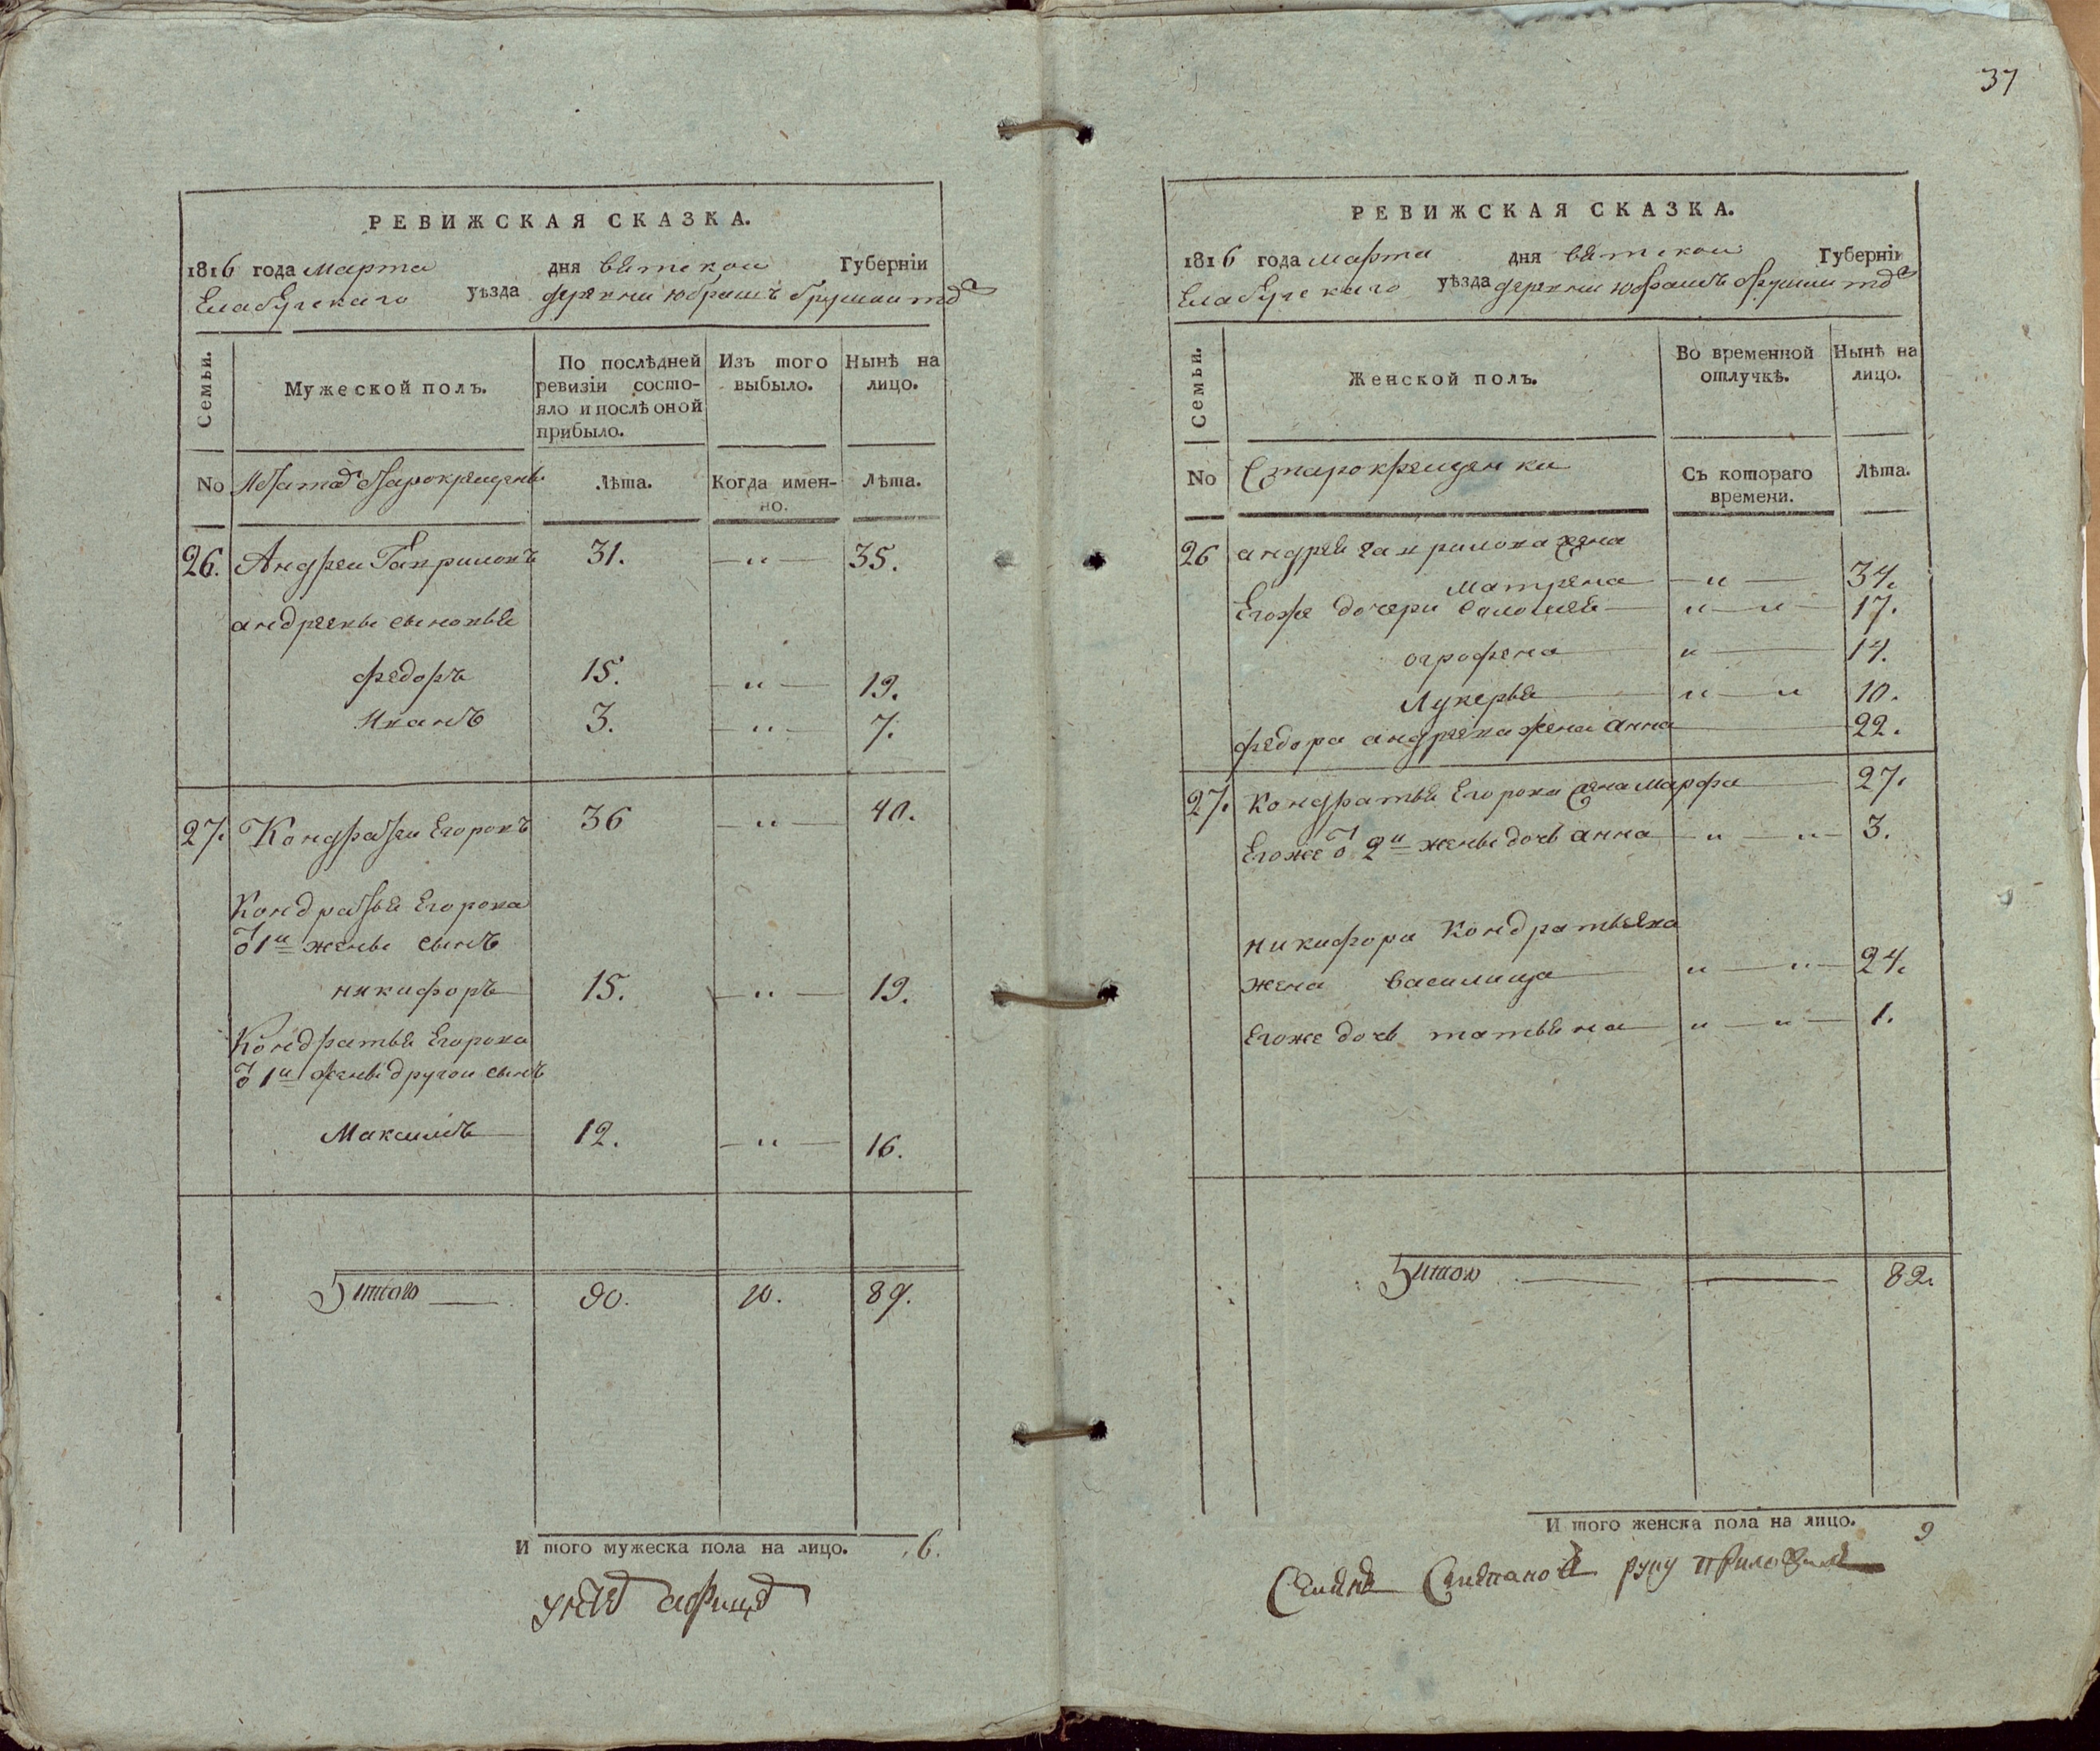 37
РЕВИЖСКАЯ СКАЗКА.
1816 года марта дня вятскои Губернїи
Елабугскаго уѣзда деревни юбрашъ
Семьи.
Мужеской полъ.
По послѣдней ревизїи состо-
яло и послѣ оной прибыло.
Изъ того выбыло.
Нынѣ на лицо.
No старокрещены
Лѣта.
Когда имен-
но.
Лѣта.
26. Андреи Гавриловъ 31. — " — 35.
андреевы сыновья
федоръ 15. — " — 19.
Иванъ 3. — " — 7.
27. Кондратеи Егоровъ 36 — " — 40.
Кондратья Егорова
о 1и жены сынъ
никифоръ 15. — " — 19.
Кондратья Егорова
о 1и жены другои сынъ
Максимъ 12. — " — 16.
итого 90. 10. 89.
И того мужеска пола на лицо. 6.
РЕВИЖСКАЯ СКАЗКА.
1816 года марта дня вятскои Губернїи
Елабугскаго уѣзда деревни юбрашъ
Семьи.
Женской полъ.
Во временной
отлучкѣ.
Нынѣ на
лицо.
No Старокрещенки
Съ котораго
времени.
Лѣта.
26 андрея гаврилова жена
матрена — " — 34.
Егоже дочери соломея — " — " — 17.
огрофена " — 14.
Лукерья " — " 10.
федора андреева жена анна — 22.
27. Кондратья Егорова жена марфа — 27.
Егоже о 2и жены дочь анна — " — " — 3.
никифора Кондратьева
жена василиса " — " — 24.
Егоже дочь татьяна — " — " — 1.
итого — — 82.
И того женска пола на лицо. 9
Семенъ Степановъ руку приложилъ